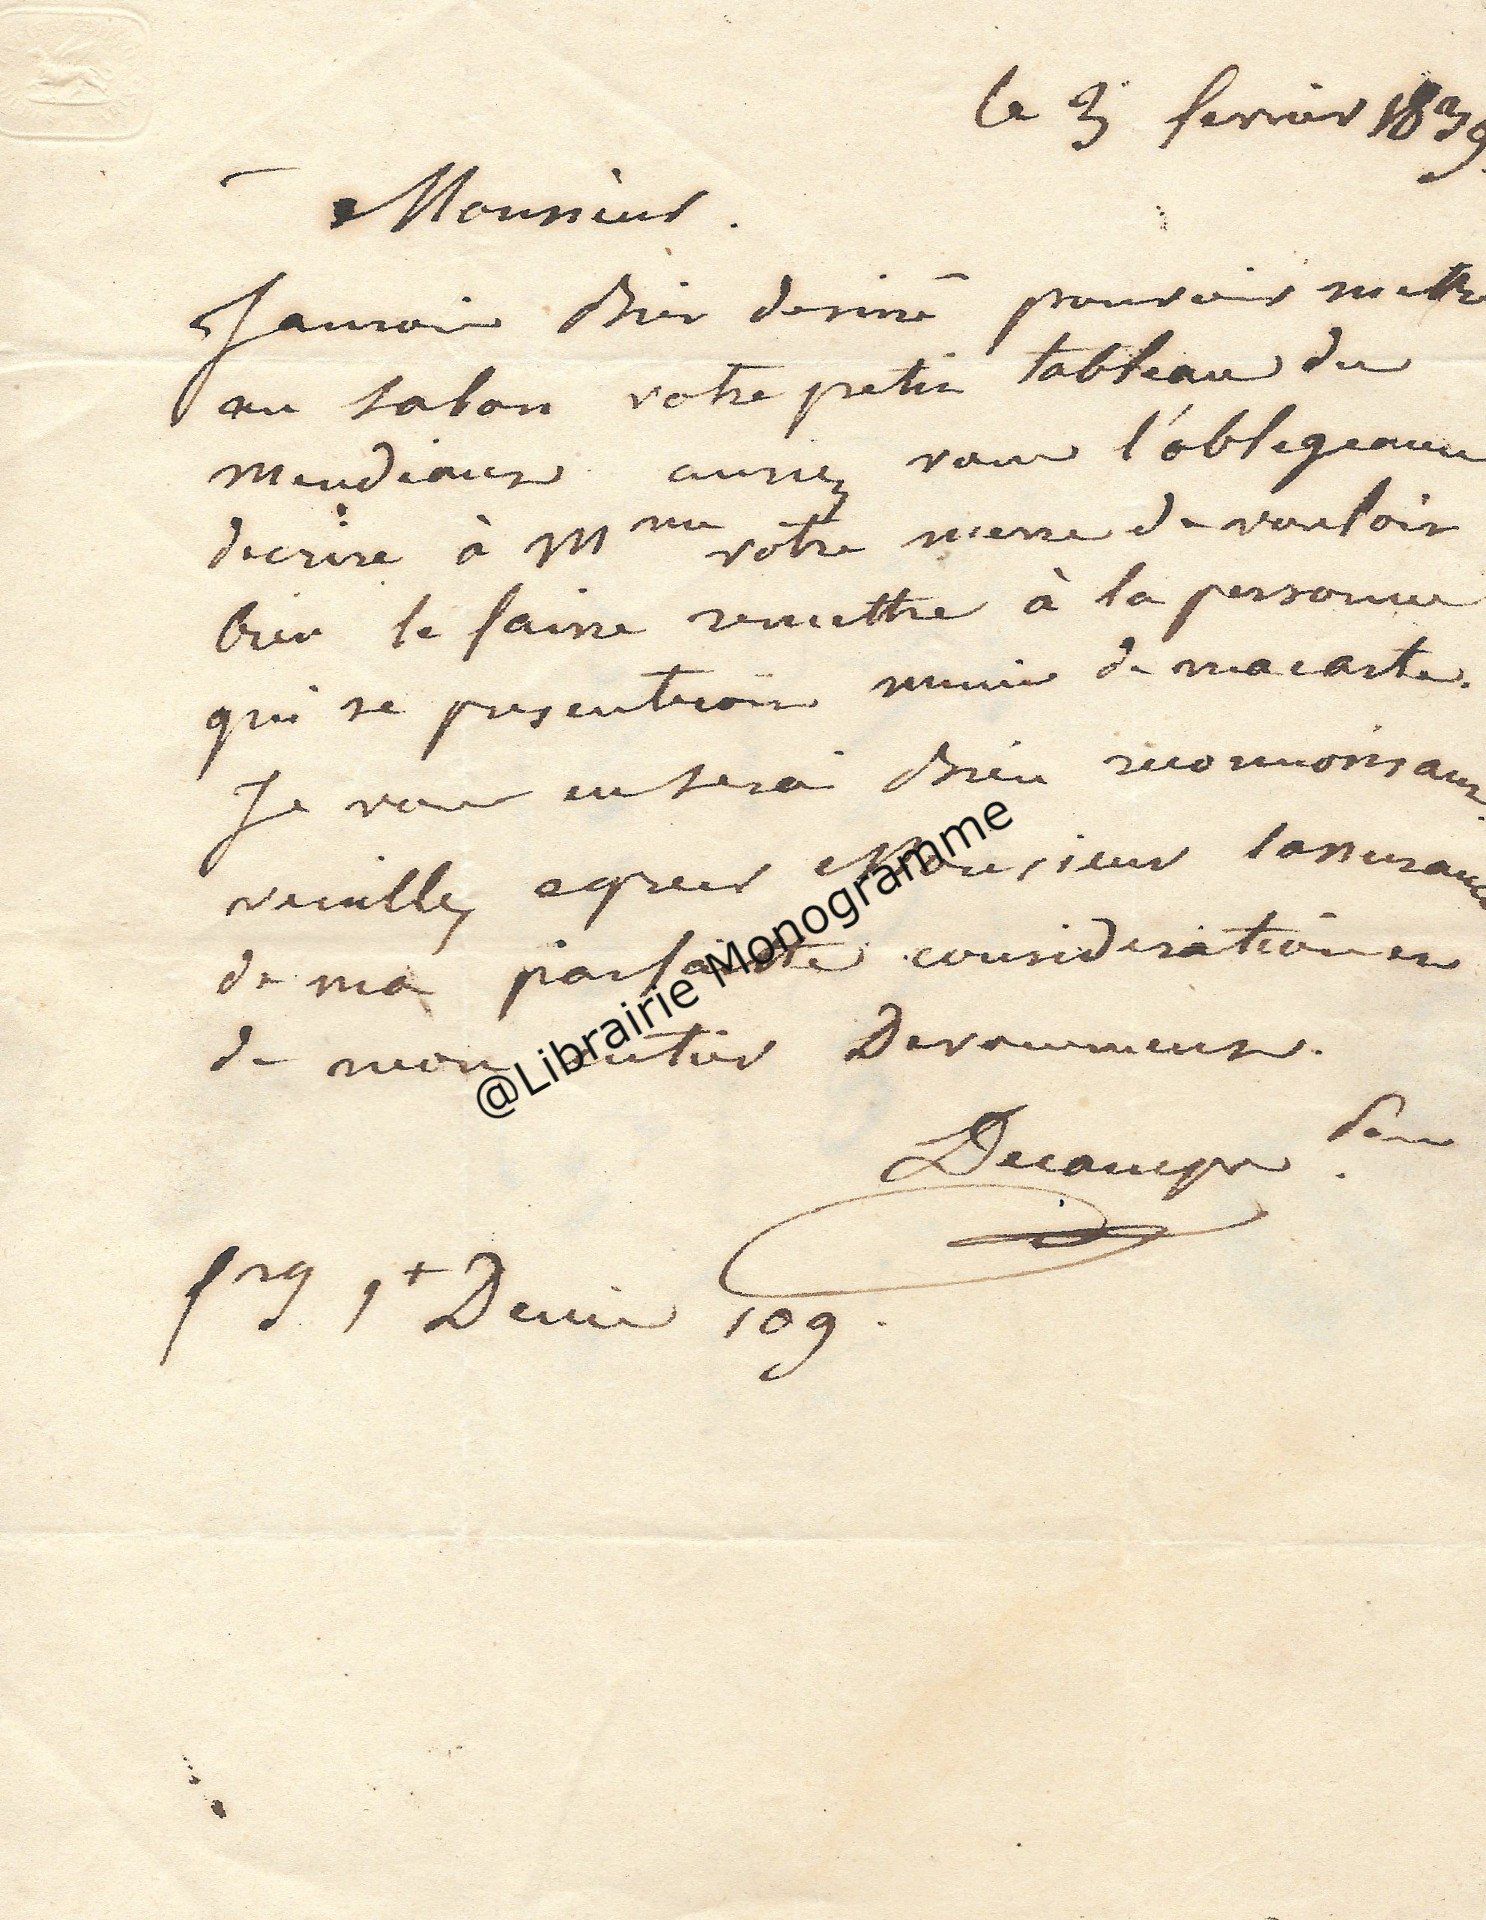 le 3 fevrier 1839
Monsieur.
Jaurois Bien desiré pouvoir mettre
au salon votre petit tableau du
mendiant auriez vous l'obligeance
decrire à Mme votre merre de vouloir
bien le faire remettre à la personne
qui se presenteroit munie de ma carte.
Je vous enserai Bien reconnoissant
veuillez agreer Monsieur lassurance
de ma parfaitte consideration et
de mon entier Devouement.
Decamps
frg St Denis 109.
@Librairie Monogramme